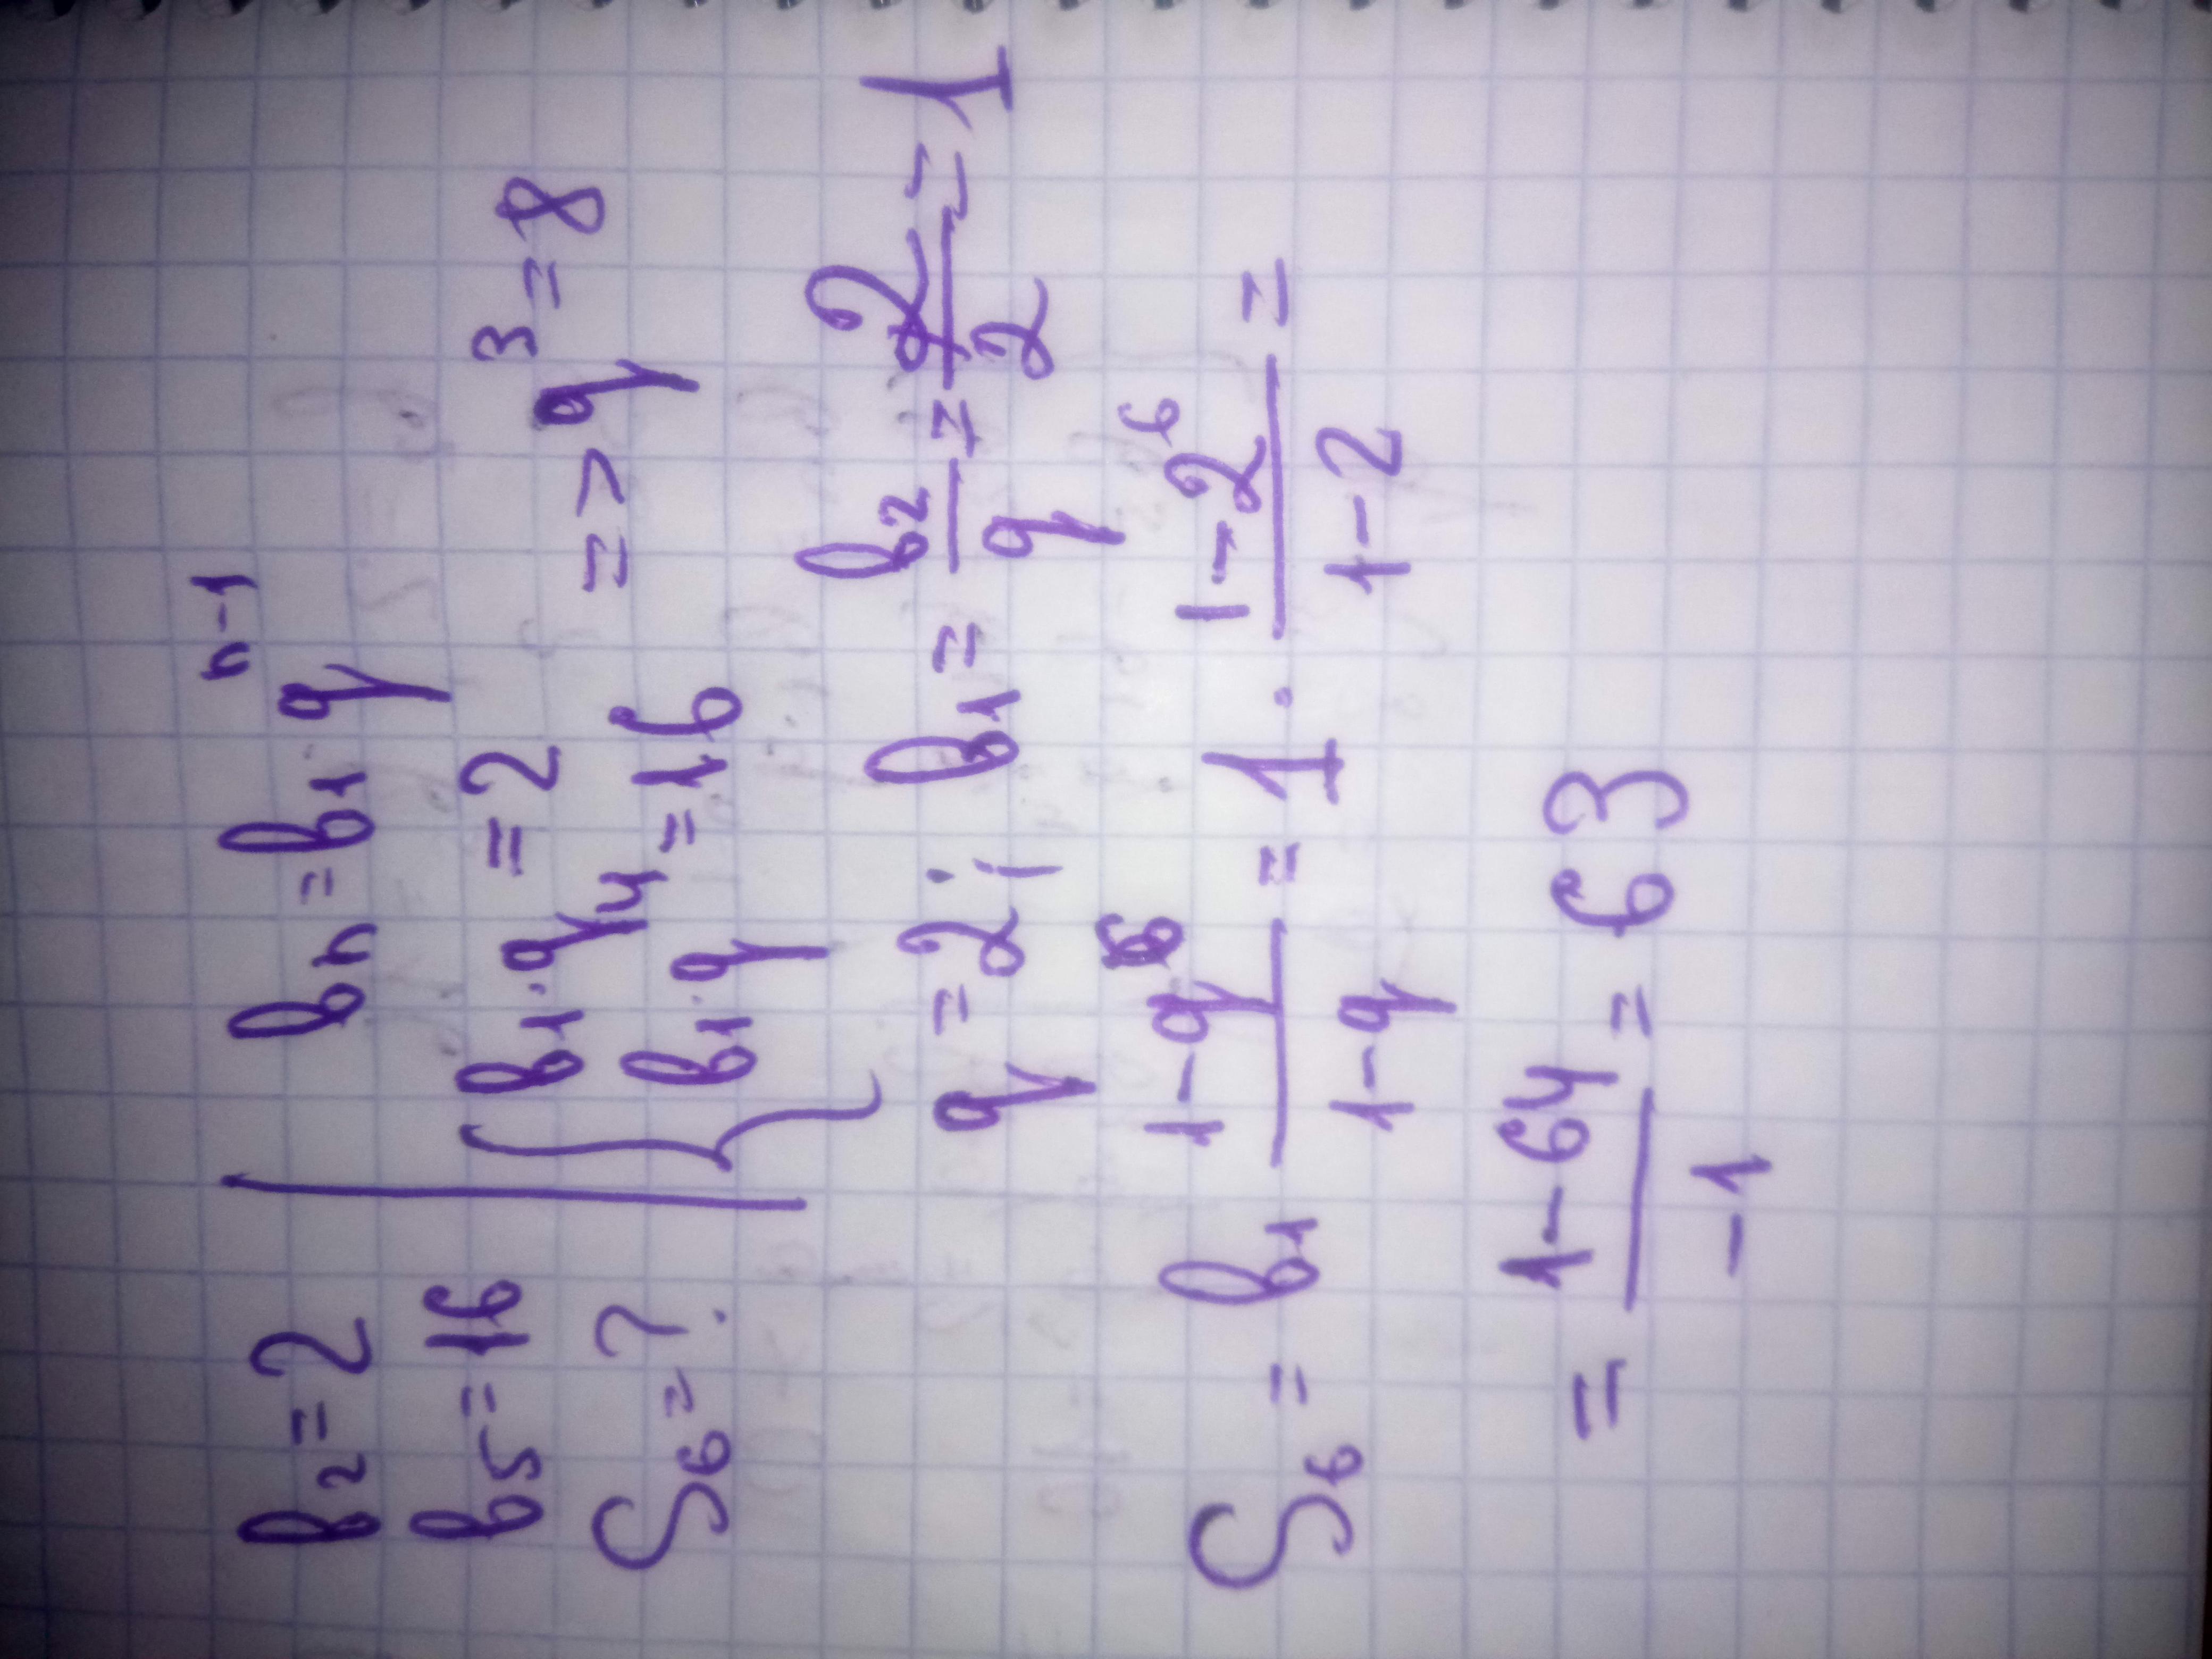 b₂ = 2
b₅ = 16
S₆ = ?
bₙ = b₁ q^(n-1)
{ b₁ · q = 2
b₁ · q⁴ = 16
=> q³ = 8
q = 2; b₁ = b₂/q = 2/2 = 1
S₆ = b₁ (1-q⁶)/(1-q) = 1 · (1-2⁶)/(1-2) =
= (1-64)/(-1) = 63